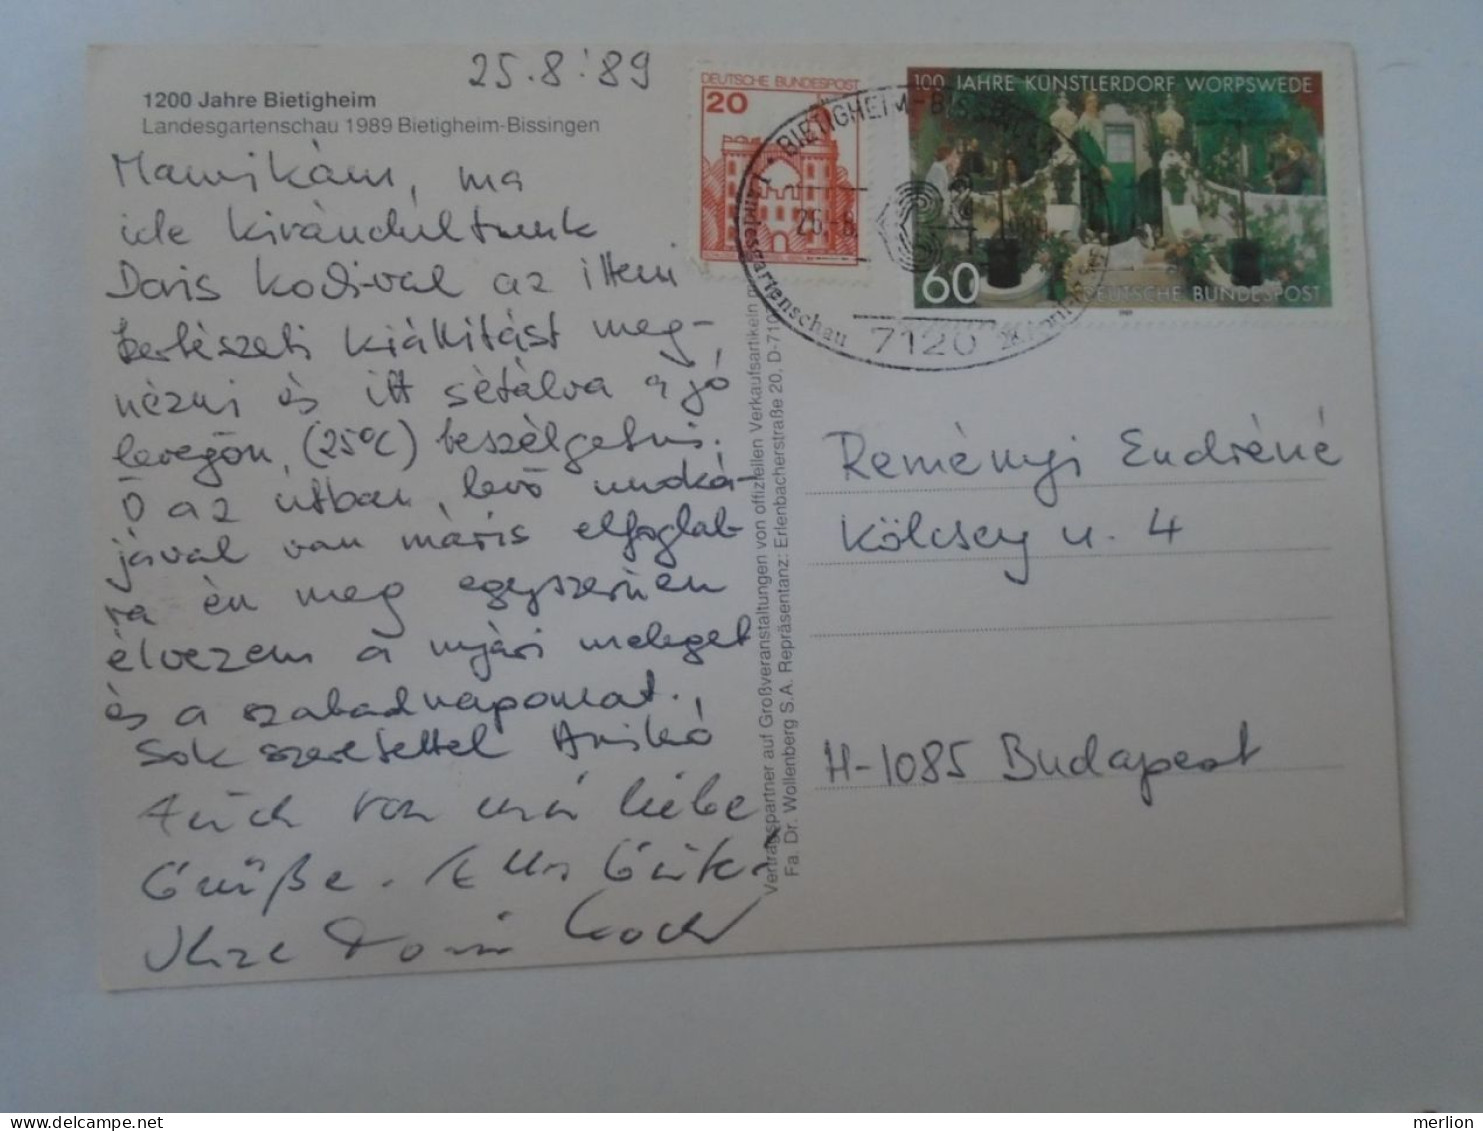 25.8.'89
1200 Jahre Bietigheim
Landesgartenschau 1989 Bietigheim-Bissingen
Mamikám, ma
ide kirándultunk
Doris Koch-val az itteni
kertészeti kiállítást meg-
nézni és itt sétálva a jó
levegőn, (25°C) beszélgetni.
Ő az útban levő munká-
jával van máris elfoglal-
va én meg egyszerűen
élvezem a nyári meleget
és a szabadnapomat.
Sok szeretettel Anikó
Auch von mir liebe
Grüße. Alles Gute
Ihre Doris Koch
DEUTSCHE BUNDESPOST
20
100 JAHRE KÜNSTLERDORF WORPSWEDE
60
DEUTSCHE BUNDESPOST
BIETIGHEIM-BISSINGEN
Landesgartenschau
25.-8.
7120
Vertragspartner auf Großveranstaltungen von offiziellen Verkaufsartikeln
Fa. Dr. Wollenberg S.A. Repräsentanz: Erlenbacherstraße 20, D-710
Reményi Endréné
Kölcsey u. 4
H-1085 Budapest
merlion